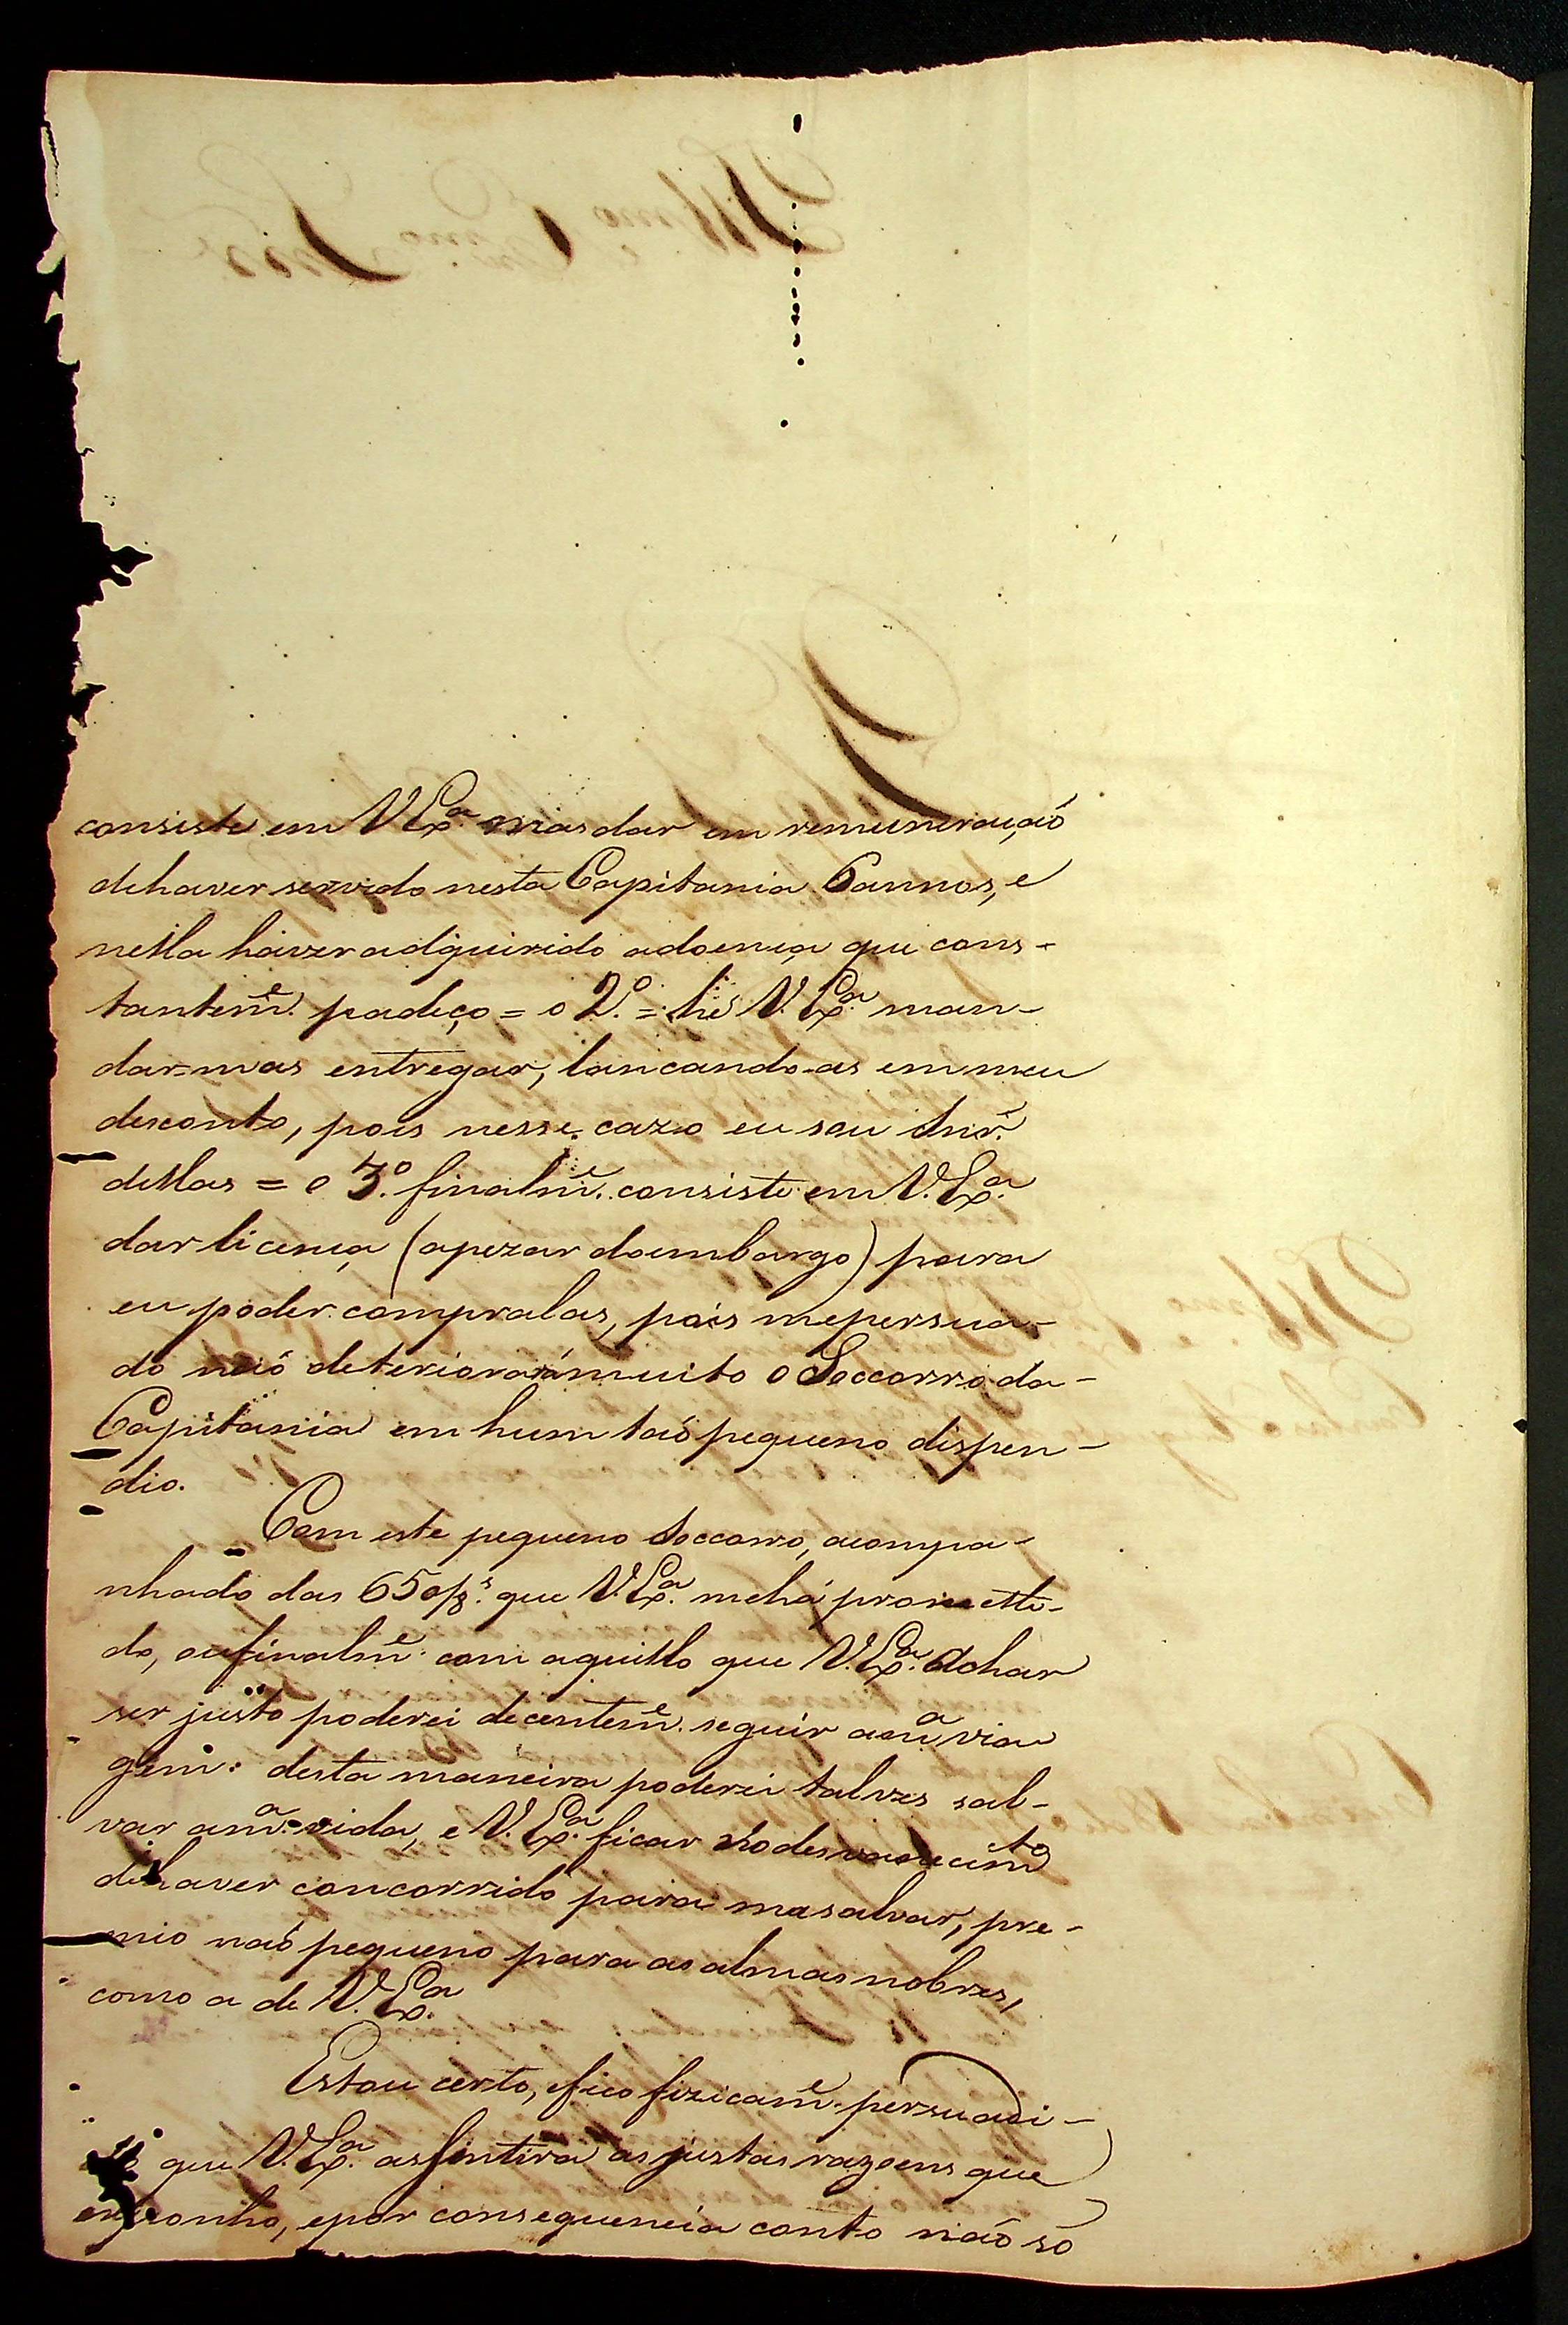 consiste em V. Exª. mas dar em remuneraçaõ
dehaver servido nesta Capitania 6 annos, e
nella haver adquirido adoença que cons-
tantemᵉ. padeço = o 2º. = hé V. Exª. man-
dar-mas entregar, lancando-as em meu
desconto, pois nesse cazo eu sou Snr̃.
dellas = o 3º. finalmᵉ. consiste em V. Exª.
dar licença (apezar doembargo) para
eu poder compralas, pois mepersua-
do naõ deteriorará muito o Soccorro da-
Capitania em hum taõ pequeno dispen-
dio.
Com este pequeno Soccorro, acompa-
nhado das 65 8ˢ. que V. Exª. mehá prometti-
do, oufinalmᵉ. com aquillo que V. Exª. Achar
ser justo poderei decentemᵉ. seguir amª via
gem: desta maneira poderei talves sal-
var amª. vida, e V. Exª. ficar no desvanecimᵗᵒ
dehaver concorrido para masalvar, pre-
mio naõ pequeno para as almas nobres,
como a de V. Exª.
Estou certo, efico fizicamᵉ. persuadi-
que V. Exª. assentira as justas razoens que
exponho, epor consequencia conto naõ só